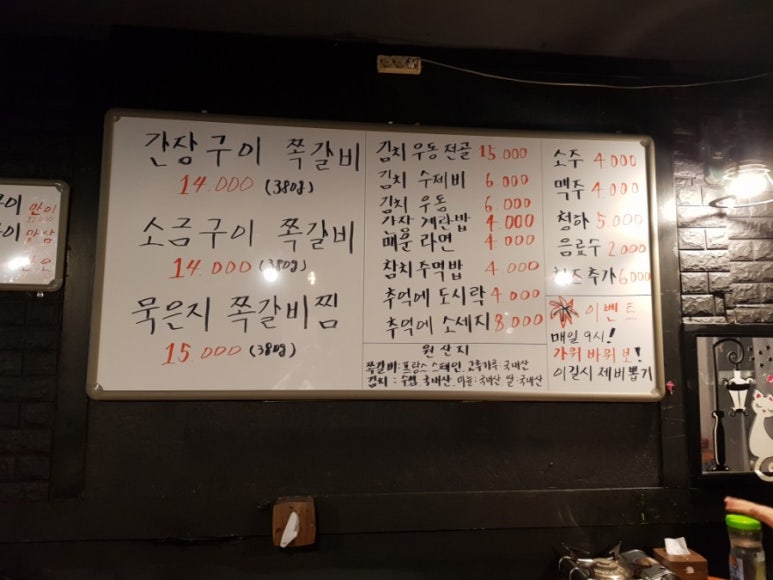 간장구이 쪽갈비
14.000 (380g)
소금구이 쪽갈비
14.000 (380g)
묵은지 쪽갈비찜
15.000 (380g)
김치우동전골 15.000
김치 수제비 6.000
김치 우동 6.000
간장 계란밥 4.000
매운 라면 4.000
참치주먹밥 4.000
추억에 도시락 4.000
추억에 소세지 8.000
원산지
쪽갈비:프랑스 스페인. 고춧가루:국내산
김치: 국내산 마늘:국내산 쌀:국내산
소주 4.000
맥주 4.000
청하 5.000
음료수 2.000
치즈추가 6000
이벤트
매일 9시!
가위 바위 보!
이길시 제비뽑기